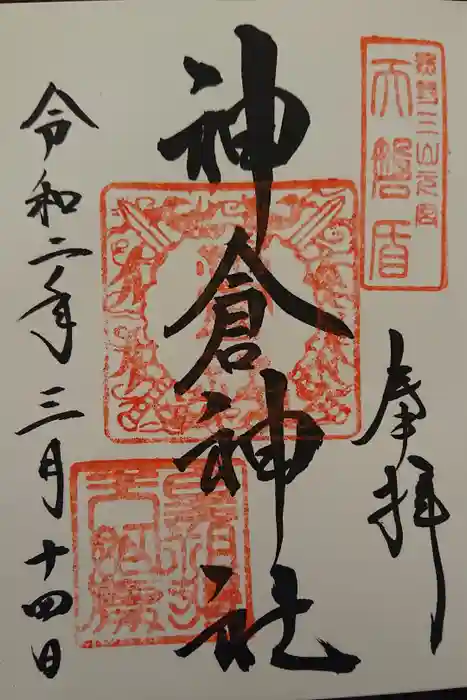 熊野三山元宮
天磐盾
奉拝
神倉神社
令和二年三月十四日